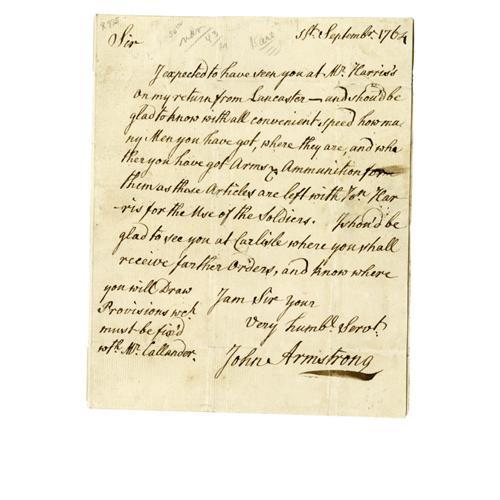 5th. Sepembr. 1764
Sir
I expected to have seen you at Mr. Harris's
on my return from Lancaster — and shou'd be
glad to know with all convenient speed how ma
ny Men you have got, where they are, and whe
ther you have got Arms & Ammunition for
them as those Articles are left with Jon. Har
ris for the Use of the Soldiers. I shou'd be
glad to see you at Carlisle where you shall
receive farther Orders, and know where
you will Draw
Provisions wch.
must be fix'd
wth. Mr. Callander.
I am Sir Your
very humbl. Servt.
John Armstrong